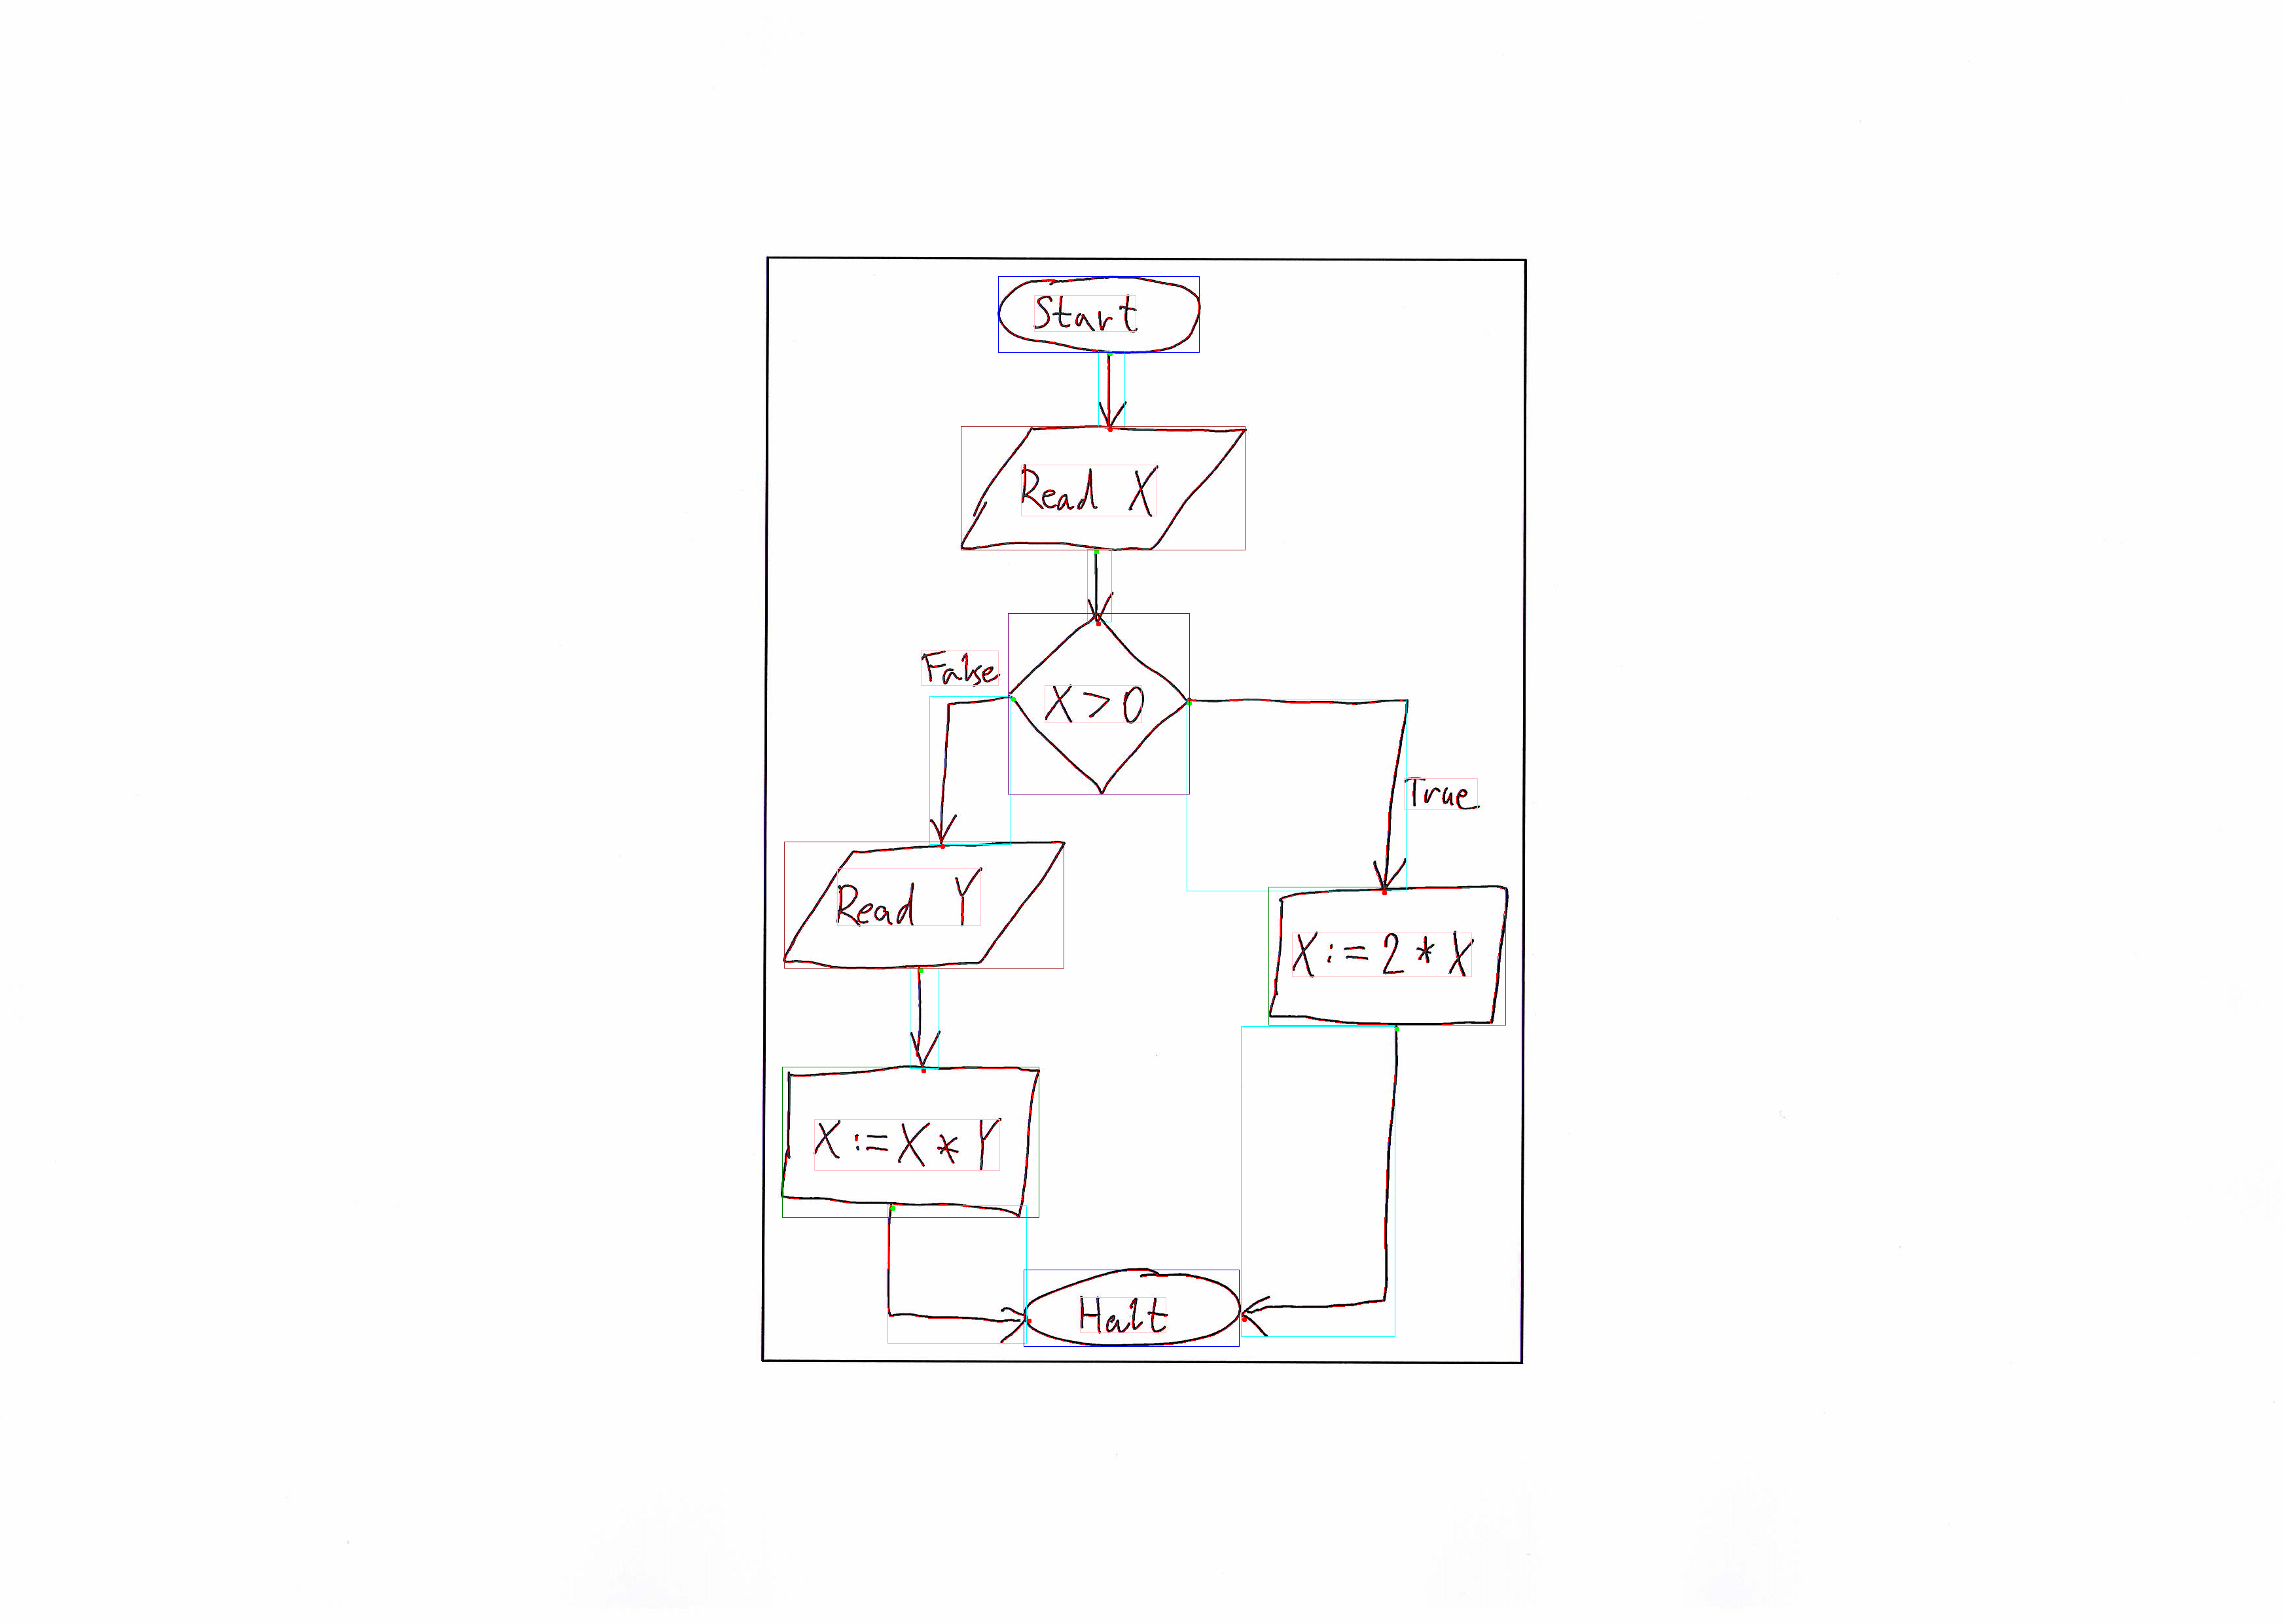 Start
Read X
False
X > 0
True
Read Y
X := 2 * X
X := X * Y
Halt